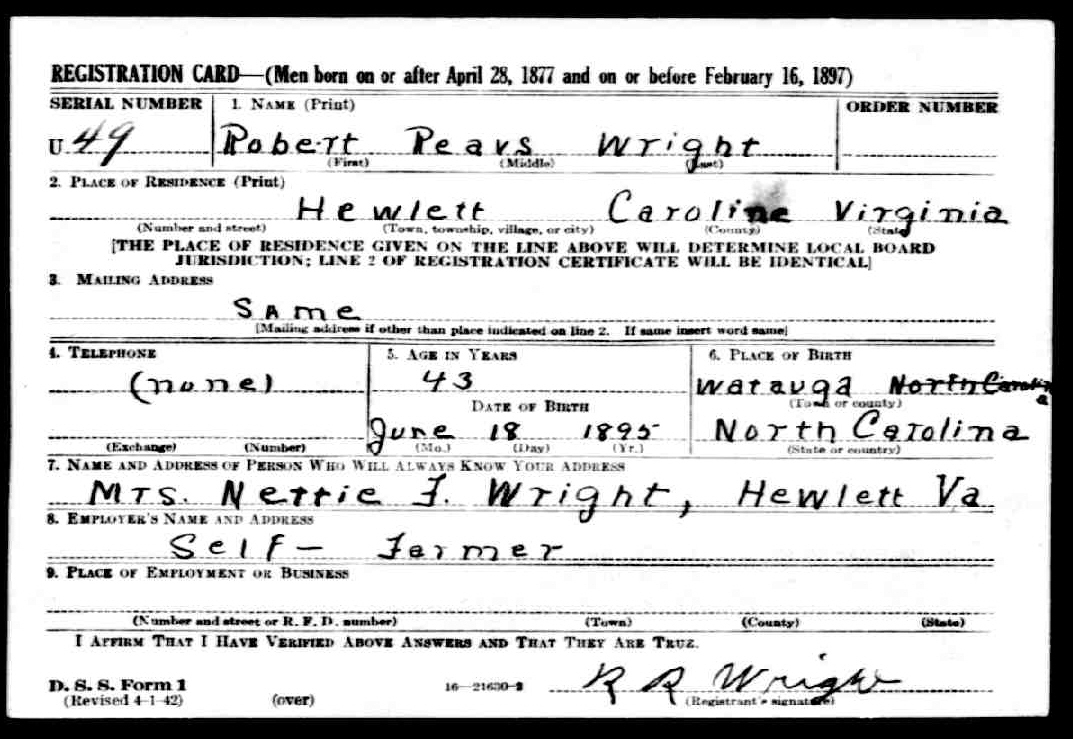 REGISTRATION CARD—(Men born on or after April 28, 1877 and on or before February 16, 1897)
SERIAL NUMBER 1. NAME (Print) ORDER NUMBER
U 49 Robert Peavs Wright
(First) (Middle) (Last)
2. PLACE OF RESIDENCE (Print)
Hewlett Caroline Virginia
(Number and street) (Town, township, village, or city) (County) (State)
[THE PLACE OF RESIDENCE GIVEN ON THE LINE ABOVE WILL DETERMINE LOCAL BOARD
JURISDICTION; LINE 2 OF REGISTRATION CERTIFICATE WILL BE IDENTICAL]
3. MAILING ADDRESS
Same
[Mailing address if other than place indicated on line 2. If same insert word same]
4. TELEPHONE 5. AGE IN YEARS 6. PLACE OF BIRTH
(none) 43 Watauga North Carolina
(Town or county)
DATE OF BIRTH
June 18 1895 North Carolina
(Exchange) (Number) (Mo.) (Day) (Yr.) (State or country)
7. NAME AND ADDRESS OF PERSON WHO WILL ALWAYS KNOW YOUR ADDRESS
Mrs. Nettie F. Wright, Hewlett Va
8. EMPLOYER'S NAME AND ADDRESS
Self - Farmer
9. PLACE OF EMPLOYMENT OR BUSINESS
(Number and street or R. F. D. number) (Town) (County) (State)
I AFFIRM THAT I HAVE VERIFIED ABOVE ANSWERS AND THAT THEY ARE TRUE.
R R Wright
D. S. S. Form 1 16—21630-2
(Revised 4-1-42) (over) (Registrant's signature)